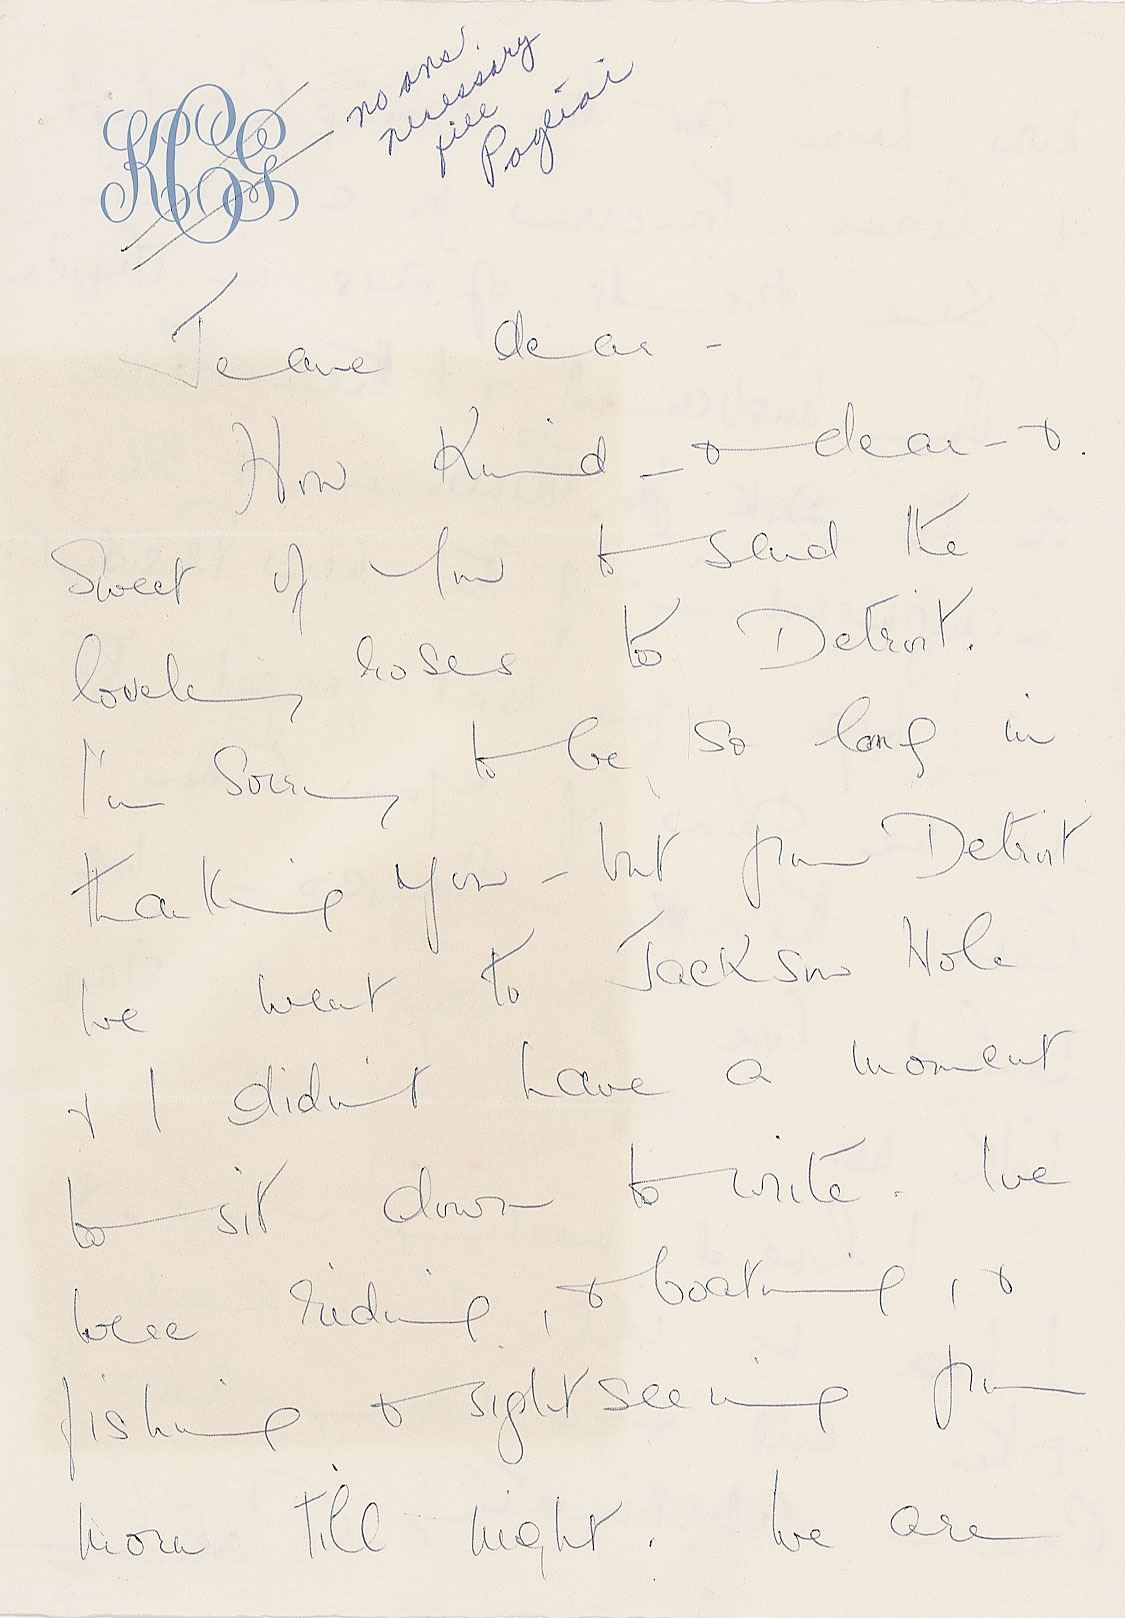 KCG
no ans.
necessary
file
Jeane dear -
How Kind - & dear - &
Sweet of You to send the
lovely roses to Detroit.
I'm sorry to be so long in
thanking you - but from Detroit
we went to Jackson Hole
& I didn't have a moment
to sit down to write. We
were riding, & boating, &
fishing & sightseeing from
morn till night. We are